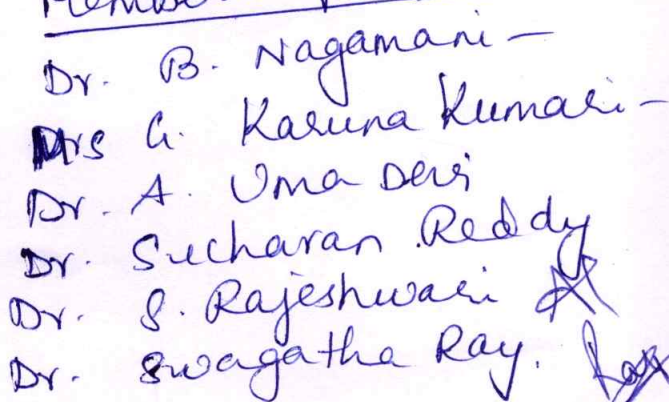 Dr. B. Nagamani -
Mrs G. Karuna Kumari -
Dr. A. Uma Devi
Dr. Sucharan Reddy
Dr. S. Rajeshwari
Dr. Swagatha Ray.